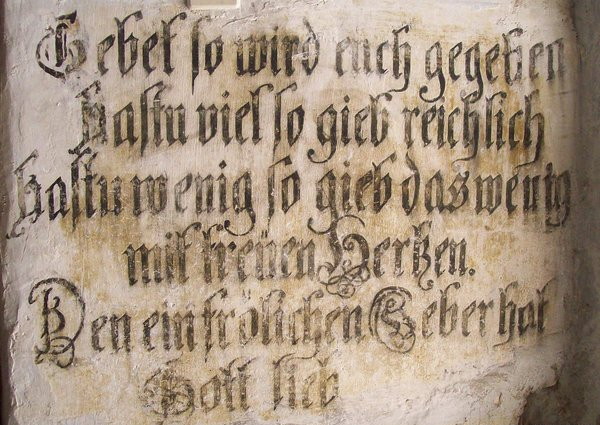 Gebet so wird euch gegeben
hastu viel so gieb reichlich
hastu wenig so gieb das wenig
mit treuen Hertzen.
Den ein frölichen Geber hat
Gott lieb